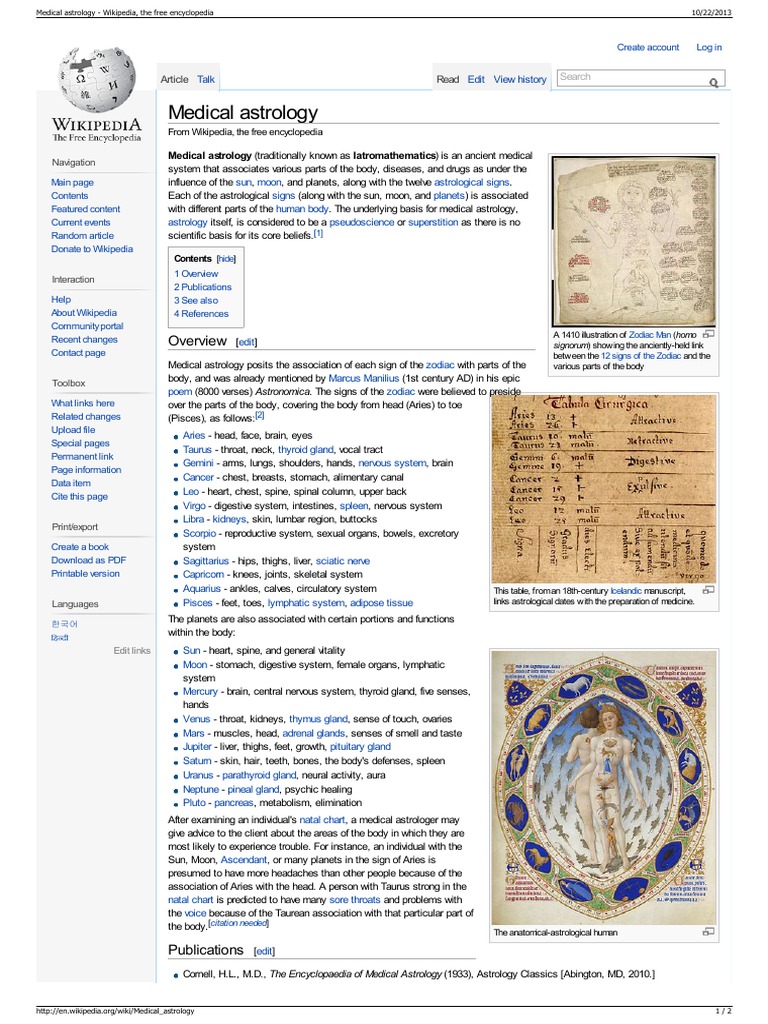 Medical astrology - Wikipedia, the free encyclopedia
10/22/2013
Create account Log in
Article Talk
Read Edit View history
Search
WIKIPEDIA
The Free Encyclopedia
Navigation
Main page
Contents
Featured content
Current events
Random article
Donate to Wikipedia
Interaction
Help
About Wikipedia
Community portal
Recent changes
Contact page
Toolbox
What links here
Related changes
Upload file
Special pages
Permanent link
Page information
Data item
Cite this page
Print/export
Create a book
Download as PDF
Printable version
Languages
한국어
हिन्दी
Edit links
Medical astrology
From Wikipedia, the free encyclopedia
Medical astrology (traditionally known as Iatromathematics) is an ancient medical
system that associates various parts of the body, diseases, and drugs as under the
influence of the sun, moon, and planets, along with the twelve astrological signs.
Each of the astrological signs (along with the sun, moon, and planets) is associated
with different parts of the human body. The underlying basis for medical astrology,
astrology itself, is considered to be a pseudoscience or superstition as there is no
scientific basis for its core beliefs.[1]
Contents [hide]
1 Overview
2 Publications
3 See also
4 References
A 1410 illustration of Zodiac Man (homo
signorum) showing the anciently-held link
between the 12 signs of the Zodiac and the
various parts of the body
Overview [edit]
Medical astrology posits the association of each sign of the zodiac with parts of the
body, and was already mentioned by Marcus Manilius (1st century AD) in his epic
poem (8000 verses) Astronomica. The signs of the zodiac were believed to preside
over the parts of the body, covering the body from head (Aries) to toe
(Pisces), as follows:[2]
Aries - head, face, brain, eyes
Taurus - throat, neck, thyroid gland, vocal tract
Gemini - arms, lungs, shoulders, hands, nervous system, brain
Cancer - chest, breasts, stomach, alimentary canal
Leo - heart, chest, spine, spinal column, upper back
Virgo - digestive system, intestines, spleen, nervous system
Libra - kidneys, skin, lumbar region, buttocks
Scorpio - reproductive system, sexual organs, bowels, excretory
system
Sagittarius - hips, thighs, liver, sciatic nerve
Capricorn - knees, joints, skeletal system
Aquarius - ankles, calves, circulatory system
Pisces - feet, toes, lymphatic system, adipose tissue
Tabula Cirurgica
Aries 13 Attractive
Aries 26
Taurus 10 Retractive
Taurus 23
Gemini 6 Digestive
Gemine 19
Cancer 2
Cancer 15
Cancer 29
Leo 12 Attractive
Leo 25
This table, from an 18th-century Icelandic manuscript,
links astrological dates with the preparation of medicine.
The planets are also associated with certain portions and functions
within the body:
Sun - heart, spine, and general vitality
Moon - stomach, digestive system, female organs, lymphatic
system
Mercury - brain, central nervous system, thyroid gland, five senses,
hands
Venus - throat, kidneys, thymus gland, sense of touch, ovaries
Mars - muscles, head, adrenal glands, senses of smell and taste
Jupiter - liver, thighs, feet, growth, pituitary gland
Saturn - skin, hair, teeth, bones, the body's defenses, spleen
Uranus - parathyroid gland, neural activity, aura
Neptune - pineal gland, psychic healing
Pluto - pancreas, metabolism, elimination
After examining an individual's natal chart, a medical astrologer may
give advice to the client about the areas of the body in which they are
most likely to experience trouble. For instance, an individual with the
Sun, Moon, Ascendant, or many planets in the sign of Aries is
presumed to have more headaches than other people because of the
association of Aries with the head. A person with Taurus strong in the
natal chart is predicted to have many sore throats and problems with
the voice because of the Taurean association with that particular part of
the body.[citation needed]
The anatomical-astrological human
Publications [edit]
Cornell, H.L., M.D., The Encyclopaedia of Medical Astrology (1933), Astrology Classics [Abington, MD, 2010.]
http://en.wikipedia.org/wiki/Medical_astrology
1 / 2